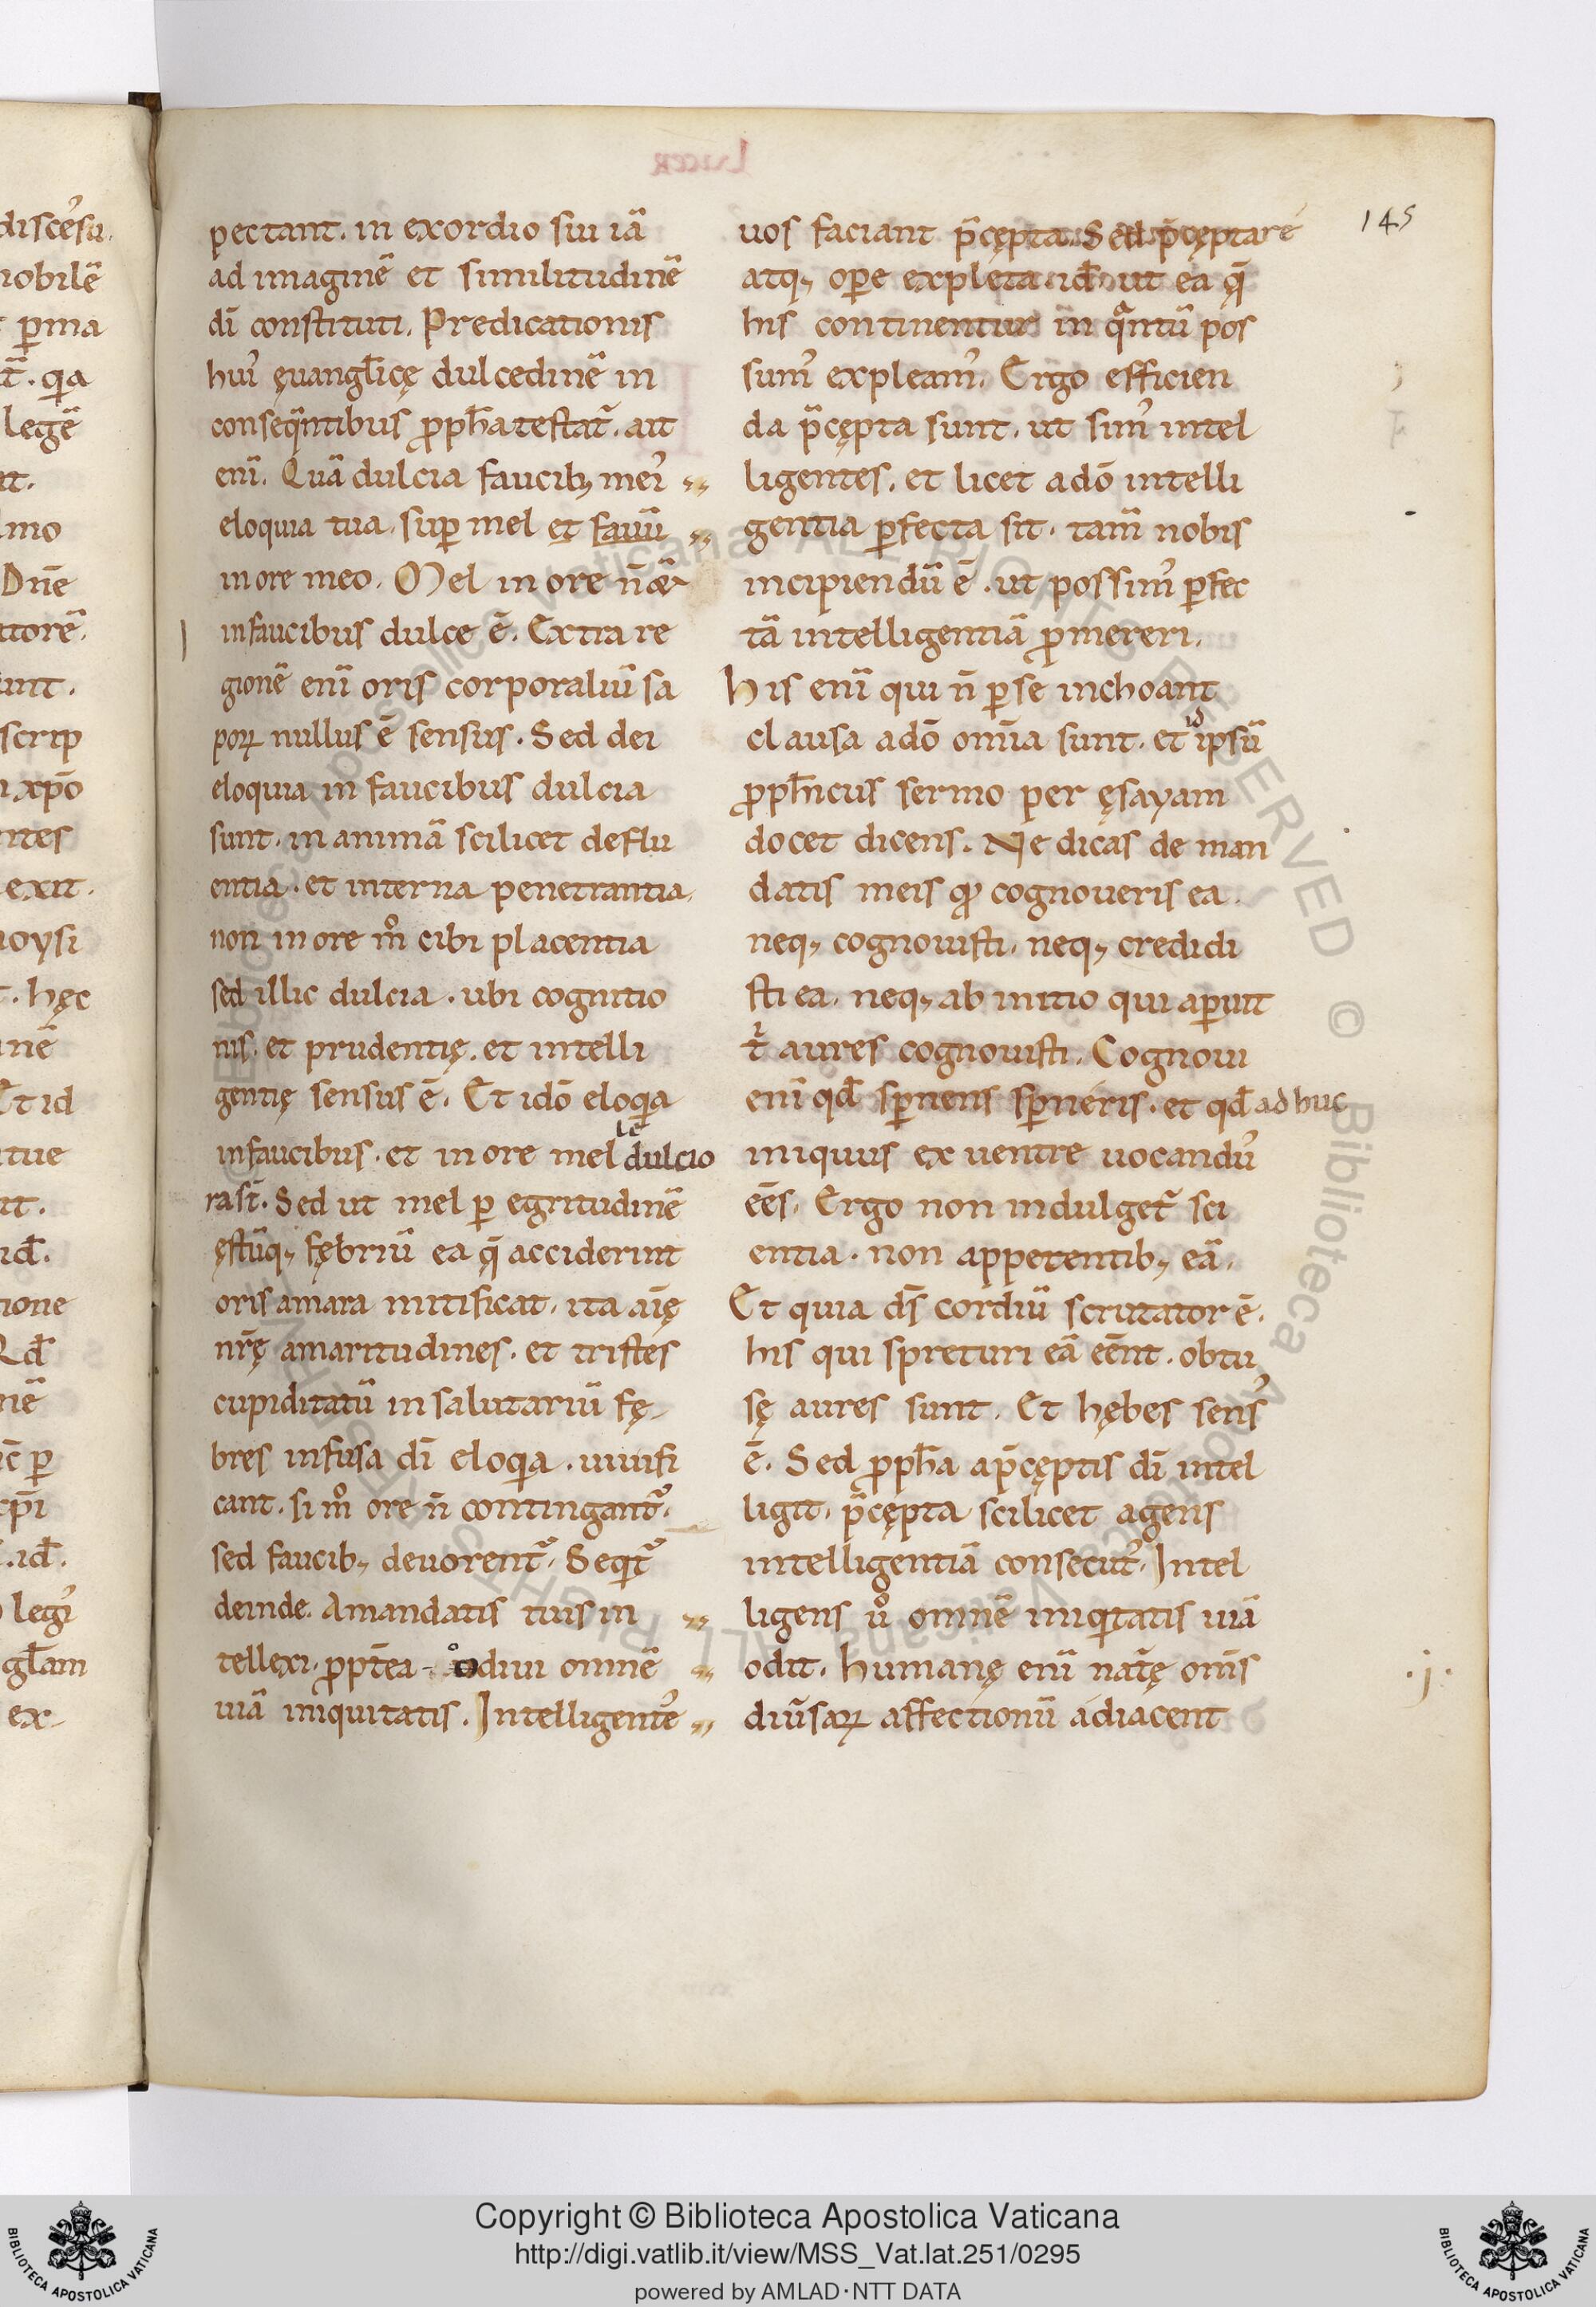 145
pectant. in exordio sui iã
ad imaginẽ et similitudinẽ
dī constituti. Predicationis
hui᾽ ęuangl̄icę dulcedinẽ in
conseq̃ntibus ꝓph̄a testat᷑. ait
eni᷑. Quã dulcia faucib; meı᷑
eloquia tua. suꝑ mel et fauũ
in ore meo. Mel in ore n̄ æ᷑
in faucibus dulce ē. Extra re
gionẽ enĩ oris corporaliũ sa
poꝝ nullus ē sensus. Sed dei
eloquia in faucibus dulcia
sunt. in animã scilicet deflu
entia. et interna penetrantia.
non in ore m̊ cibi placentia
sed illic dulcia. ubi cognitio
nis. et prudentię. et intelli
gentię sensus ē. Et idō eloqia
in faucibus. et in ore mel le dulcio
ra st̄. Sed ut mel ꝑ egritudinẽ
ęstũq; fębriũ ea q̄ acciderint
oris amara mitificat. ita aīę
nr̄ę amaritudines. et tristes
cupiditatũ in salutariũ fę
bres infusa dī eloqia. uiuifi
cant. si m̊ ore n̄ contingant᷑.
sed faucib; deuorent᷑. Seqit᷑
deinde. A mandatis tuis in
tellexi. ꝓpt̄ea odiui omnẽ
uiã iniquitatis. Intelligente᷑
uos faciant p̃cępta. Sed p̃cępta re
atq; oꝑe expleta. id̄. ut ea q̄
his continentur in qͣntũ pos
sum᾽ expleam᾽. Ergo efficien
da p̃cępta sunt. ut sim᾽ intel
ligentes. et licet a dō intelli
gentia ꝑfecta sit. tam̃ nobis
incipiendũ ē. ut possim᾽ ꝑfec
tã intelligentiã ꝓmereri.
His enĩ qui n̄ ꝑ se inchoant
clausa a dō om̄ia sunt. et id ipsũ
ꝓph̄icus sermo per ęsayam
docet dicens. Ne dicas de man
datis meis qđ cognoueris ea.
neq; cognouisti. neq; credidi
sti ea. neq; ab initio qui aꝑuit
tⁱ aures cognouisti. Cognoui
enĩ qd̄ sꝑnens sꝑneris. et qd̄ ad huc
iniquus ex uentre uocand᾽
eēs. Ergo non indulget᷑ sci
entia. non appetentib; eã.
Et quia ds̄ cordiũ scrutator ē.
his qui spreturi eã eēnt. obtu
sę aures sunt. Et hębes sens᾽
ē. Sed ꝓph̄a a p̄cęptis dī intel
ligit. p̃cępta scilicet agens
intelligentiã consecut᾽. Intel
ligens ů omnẽ iniqitatis uiã
odit. humanę enĩ nat᷑ę om̄s
diũsaꝝ affectionũ adiacent
.j.
discesu
nobilẽ
ꝑma
qia
legẽ
nt.
Dn̄e
ttorẽ.
unt.
scrip
xp̄o
ntes
exit.
oysi
hęc
nẽ
Et id
tue
id̄.
ione
Qd̄
nẽ
ꝑ
id̄.
gl̄am
ex
Copyright © Biblioteca Apostolica Vaticana
http://digi.vatlib.it/view/MSS_Vat.lat.251/0295
powered by AMLAD·NTT DATA
BIBLIOTECA APOSTOLICA VATICANA
BIBLIOTECA APOSTOLICA VATICANA